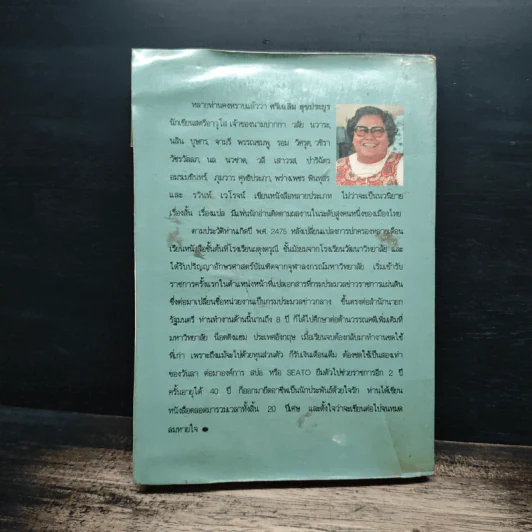 หลายท่านคงทราบแล้วว่า ศรีเฉลิม สุขประยูร
นักเขียนสตรีอาวุโส เจ้าของนามปากกา วลัย นวาระ,
นลิน บุษกร, จามรี พรรณชมพู,
วัชรวัลลภ, นล
และ เขียนหนังสือหลายประเภท ไม่ว่าจะเป็นนวนิยาย
เรื่องสั้น เรื่องแปล มีแฟนนักอ่านติดตามผลงานในระดับสูงคนหนึ่งของเมืองไทย
ตามประวัติท่านเกิดปี พ.ศ. 2475 หลังเปลี่ยนแปลงการปกครองหลายเดือน
เรียนหนังสือชั้นต้นที่โรงเรียนผดุงดรุณี ชั้นมัธยมจากโรงเรียนวัฒนาวิทยาลัย และ
ได้รับปริญญาอักษรศาสตร์บัณฑิตจากจุฬาลงกรณ์มหาวิทยาลัย เริ่มเข้ารับ
ราชการครั้งแรกในตำแหน่งหน้าที่แปลเอกสารที่กรมประมวลข่าวราชการแผ่นดิน
ซึ่งต่อมาเปลี่ยนชื่อหน่วยงานเป็นกรมประมวลข่าวกลาง ขึ้นตรงต่อสำนักนายก
รัฐมนตรี ท่านทำงานด้านนี้นานถึง 8 ปี ก็ได้ไปศึกษาต่อด้านวรรณคดีเพิ่มเติมที่
มหาวิทยาลัย น็อตติงแฮม ประเทศอังกฤษ เมื่อเรียนจบต้องกลับมาทำงานชดใช้
ที่เก่า เพราะถึงแม้จะไปด้วยทุนส่วนตัว ก็รับเงินเดือนเต็ม ต้องชดใช้เป็นสองเท่า
ของวันลา ต่อมาองค์การ สปอ. หรือ SEATO ยืมตัวไปช่วยราชการอีก 2 ปี
ครั้นอายุได้ 40 ปี ก็ออกมายึดอาชีพเป็นนักประพันธ์ด้วยใจรัก ท่านได้เขียน
หนังสือตลอดมารวมเวลาทั้งสิ้น 20 ปีเศษ และตั้งใจว่าจะเขียนต่อไปจนหมด
ลมหายใจ ●